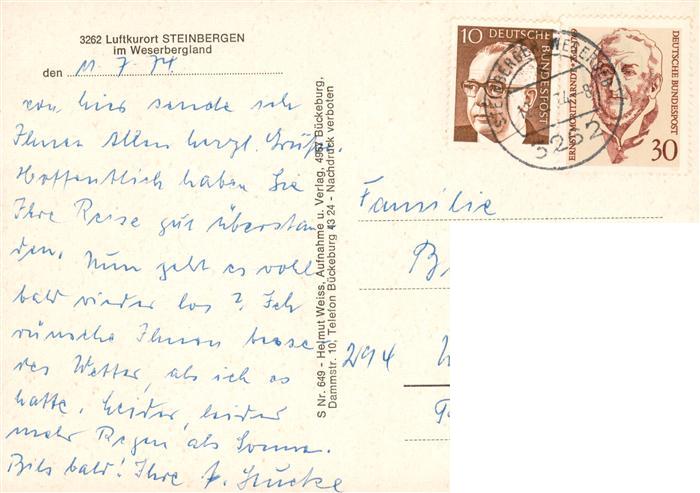 3262 Luftkurort STEINBERGEN
im Weserbergland
den 11.7.74.
von hier sende ich
Ihnen Allen herzl. Grüße.
Hoffentlich haben Sie
Ihre Reise gut überstan
den. Nun geht es wohl
bald wieder los? Ich
wünsche Ihnen besse
des Wetter, als ich es
hatte. Leider, leider
mehr Regen als Sonne.
Bis bald! Ihre
S Nr. 649 - Helmut Weiss, Aufnahme u. Verlag, 4967 Bückeburg,
Dammstr. 10, Telefon Bückeburg 43 24 - Nachdruck verboten
10 DEUTSCHE BUNDESPOST
ERNST MORITZ ARNDT
DEUTSCHE BUNDESPOST
30
3262
Familie
294